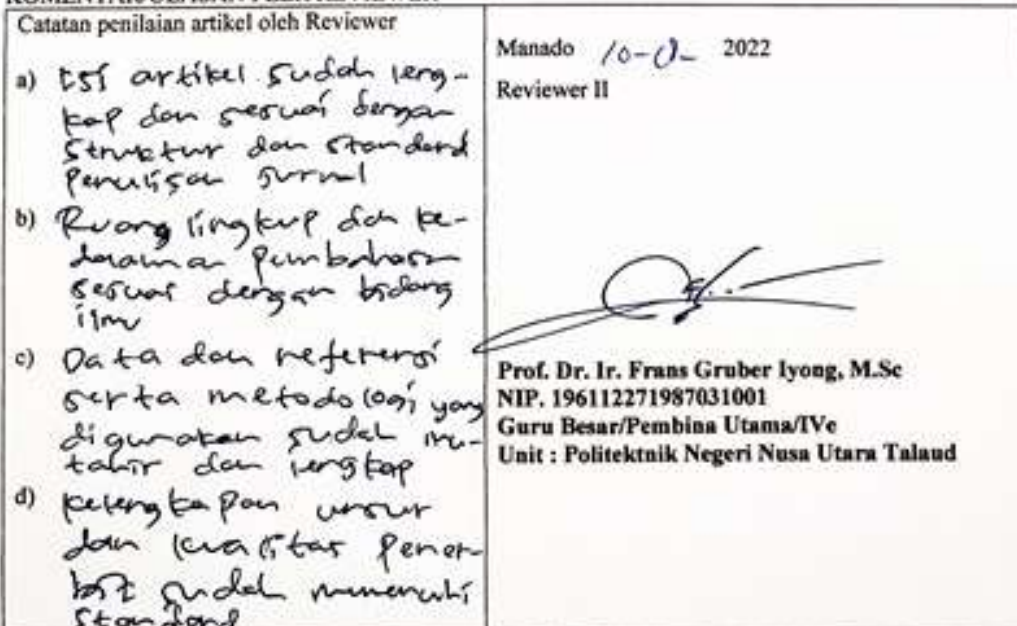 KOMENTAR/ULASAN PEER REVIEWER
Catatan penilaian artikel oleh Reviewer
a) Isi artikel sudah leng-
kap dan sesuai dengan
struktur dan standard
penulisan jurnal
b) Ruang lingkup dan ke-
dalaman pembahasan
sesuai dengan bidang
ilmu
c) Data dan referensi
serta metodologi yang
digunakan sudah mu-
tahir dan lengkap
d) kelengkapan unsur
dan kualitas pener-
bit sudah memenuhi
standard
Manado 2022
Reviewer II
Prof. Dr. Ir. Frans Gruber Iyong, M.Sc
NIP. 196112271987031001
Guru Besar/Pembina Utama/IVe
Unit : Politektnik Negeri Nusa Utara Talaud